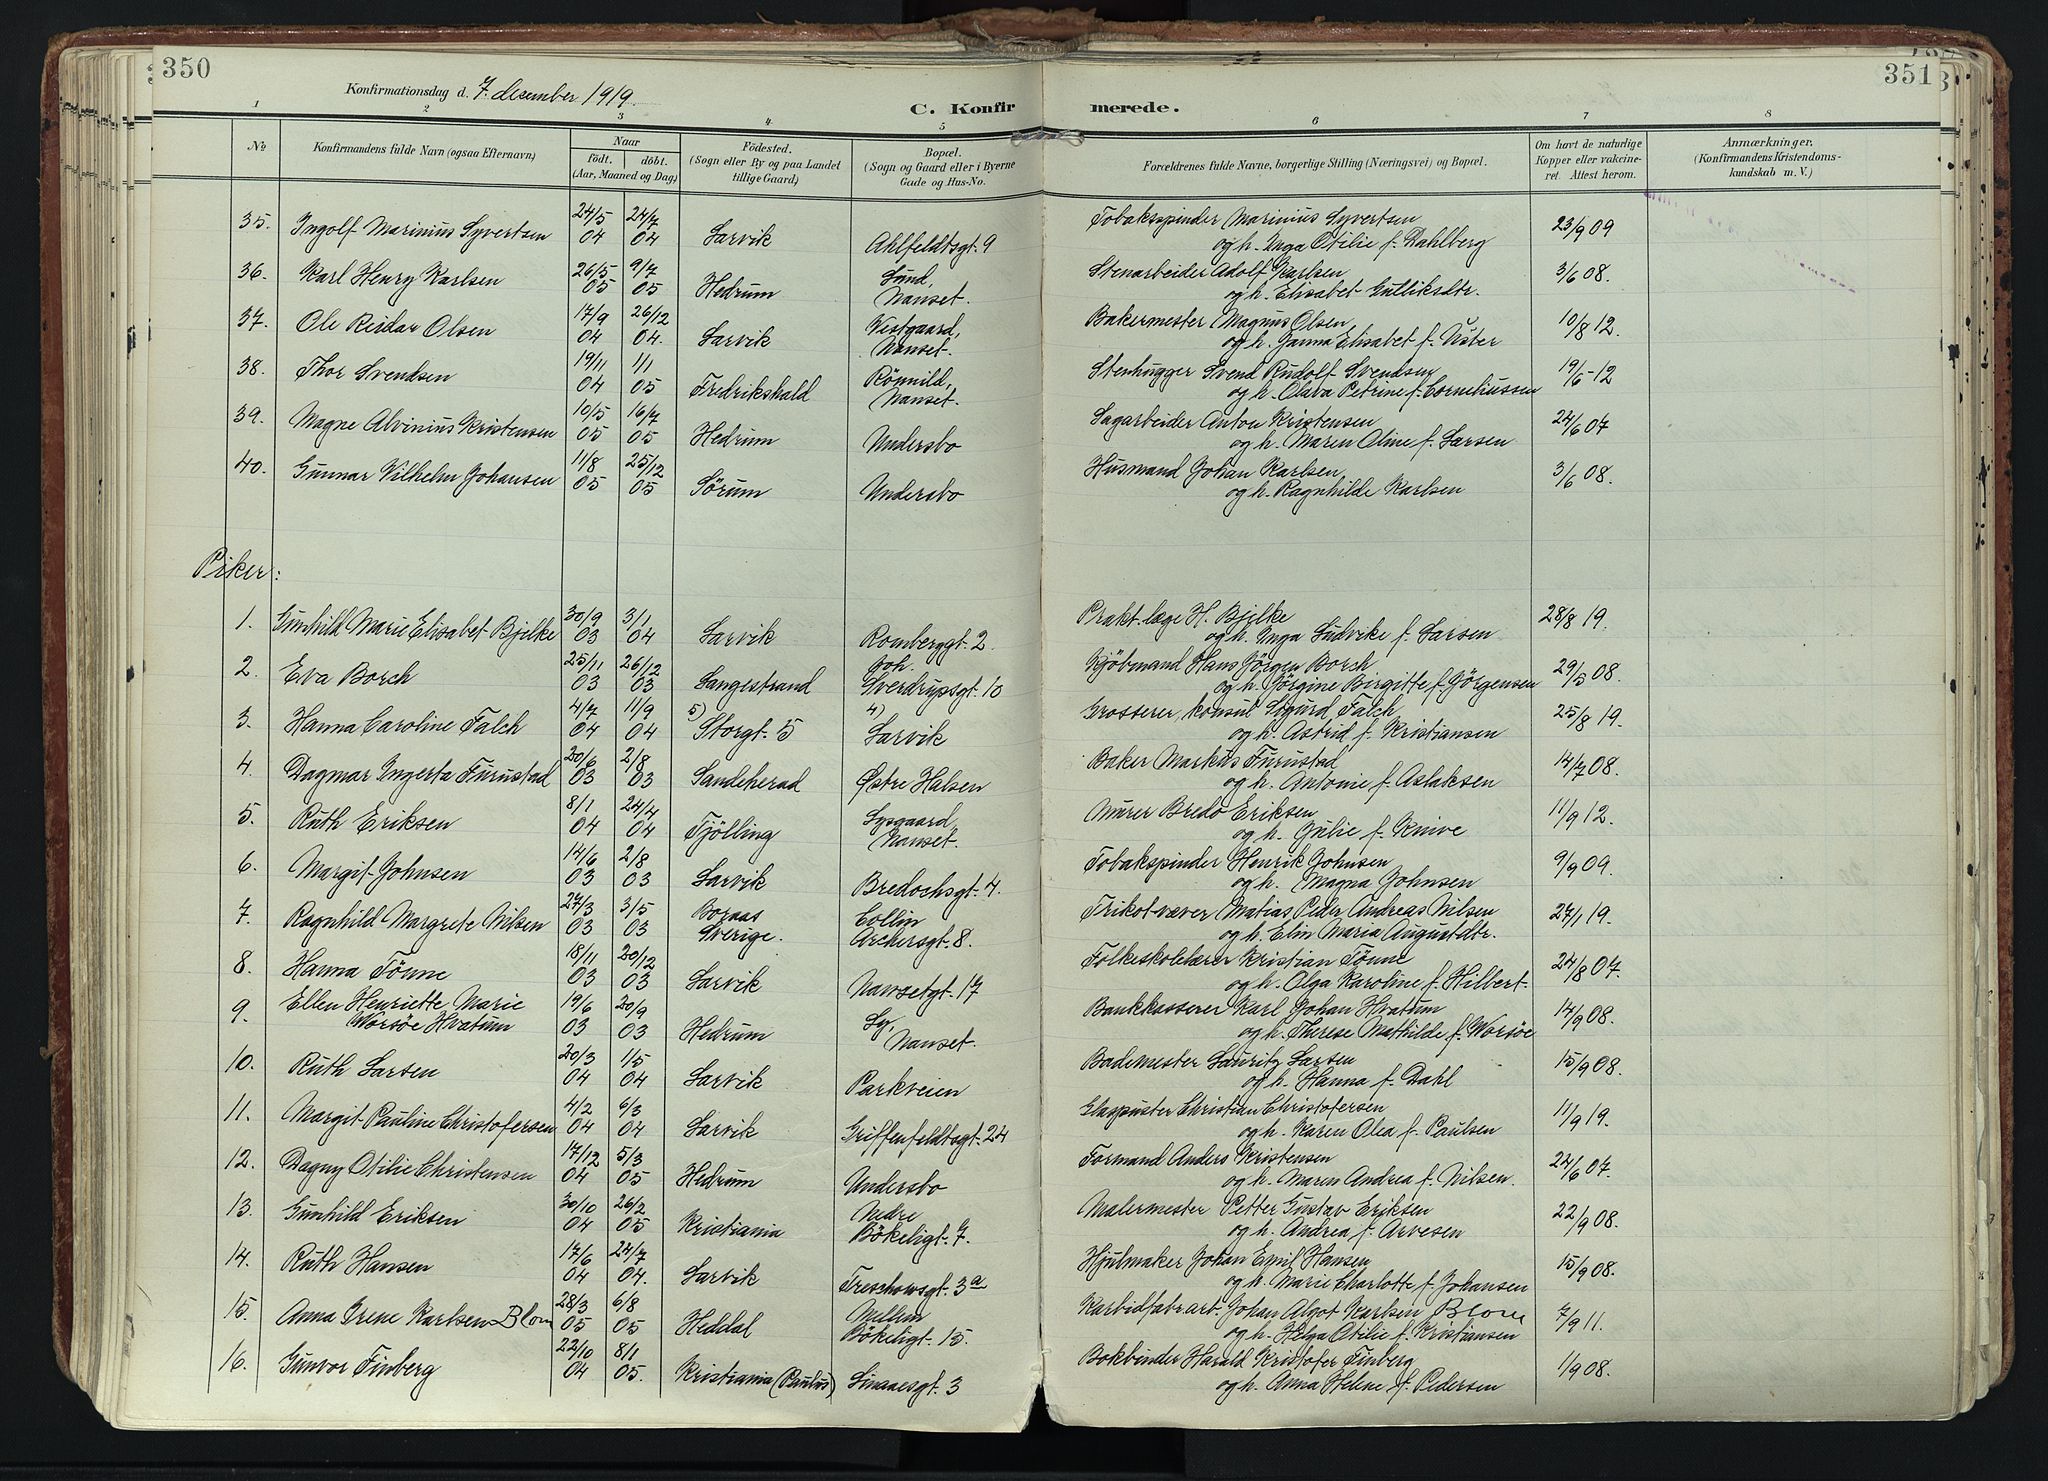 350
351
Konfirmationsdag d. 7. desember 1919.
C. Konfirmerede.
1 2 3 4 5 6 7 8
No
Konfirmandens fulde Navn (ogsaa Efternavn)
Naar
födt. döbt.
(Aar, Maaned og Dag)
Födested.
(Sogn eller By og paa Landet
tillige Gaard)
Bopæl.
(Sogn og Gaard eller i Byerne
Gade og Hus-No.
Forældrenes fulde Navne, borgerlige Stilling (Næringsvei) og Bopæl.
Om havt de naturlige
Kopper eller vakcine-
ret. Attest herom.
Anmærkninger.
(Konfirmandens Kristendoms-
kundskab m. V.)
35. Ingolf Marinius Syvertsen 24/5 04 24/7 04 Larvik Ahlfeldtsgt. 9 Tobakspinder Marinius Syvertsen 23/9 09
og h. Inga Otilie f. Dahlberg
36. Karl Henry Karlsen 26/5 05 9/7 05 Hedrum Lund, Nanset. Stenarbeider Adolf Karlsen 3/6 08.
og h. Elisabet Gulliksdtr.
37. Ole Reidar Olsen 17/9 04 26/12 04. Larvik Vestgaard, Nanset. Bakermester Magnus Olsen 10/8 12.
og h. Janna Elisabet f. Uster
38. Thor Svendsen 19/11 04 1/1 05 Fredrikshald Römild, Nanset. Stenhugger Svend Rudolf Svendsen 19/6-12
og h. Olava Petrine f. Corneliussen
39. Magne Alvinius Kristensen 10/5 05 16/7 05 Hedrum Undersbo Sagarbeider Anton Kristensen 24/6 07
og h. Maren Oline f. Larsen
40. Gunnar Vilhelm Johansen 11/8 05 25/12 05 Sörum Undersbo Husmand Johan Karlsen 3/6 08.
og h. Ragnhilde Karlsen
Piker:
1. Gunhild Marie Elisabet Bjelke 30/9 03 3/1 04 Larvik Romberggt. 2. Prakt. læge H. Bjelke 28/8 19.
og h. Inga Ludvike f. Larsen
2. Eva Borch 25/11 03 26/12 03 Langestrand Joh. Sverdrupsgt. 10 Kjöbmand Hans Jörgen Borch 29/5 08.
og h. Jörgine Birgitte f. Jörgensen
3. Hanna Caroline Falch 4/7 04 11/9 04 5) Storgt. 5 4) Larvik Grosserer, konsul Sigurd Falch 25/8 19.
og h. Astrid f. Kristiansen
4. Dagmar Ingerta Furustad 20/6 03 2/8 03 Sandeherad Østre Halsen Baker Markus Furustad 14/7 08.
og h. Antonie f. Aslaksen
5. Ruth Eriksen 8/1 04 24/4 04 Tjölling Lysgaard, Nanset. Murer Bredo Eriksen 11/9 12.
og h. Julie f. Knive
6. Margit Johnsen 14/6 03 2/8 03 Larvik Bredochsgt. 4. Tobakspinder Henrik Johnsen 9/9 09.
og h. Magna Johnsen
7. Ragnhild Margrete Nilsen 27/3 03 3/5 03 Boraas Sverige. Collin Archersgt. 8. Trikotvæver Matias Peder Andreas Nilsen 27/1 19.
og h. Elin Maria Augustdtr.
8. Hanna Tönne 18/11 03 20/12 03 Larvik Nansetgt. 17 Folkeskolelærer Kristian Tönne 24/8 07.
og h. Olga Karoline f. Hilbert
9. Ellen Henriette Marie Worsöe Hvatum 19/6 03 20/9 03 Hedrum Ly, Nanset. Bankkasserer Karl Johan Hvatum 14/9 08.
og h. Therese Mathilde f. Worsöe
10. Ruth Larsen 20/3 04 1/5 04 Larvik Parkveien Bademester Lauritz Larsen 15/9 08.
og h. Hanna f. Dahl
11. Margit Pauline Christofersen 4/2 04 6/3 04 Larvik Griffenfeldtsgt. 24 Glaspuster Christian Christofersen 11/9 19.
og h. Karen Olea f. Paulsen
12. Dagny Otilie Christensen 17/12 04 5/3 05 Hedrum Undersbo Formand Anders Kristensen 24/6 07.
og h. Maren Andrea f. Nilsen.
13. Gunhild Eriksen 30/10 04 26/2 05 Kristiania Nedre Bökeligt. 7. Malermester Petter Gustav Eriksen 22/9 08.
og h. Andrea f. Arvesen
14. Ruth Hansen 17/6 04 24/7 04. Larvik Treschowsgt. 3a Hjulmaker Johan Emil Hansen 15/9 08.
og h. Marie Charlotte f. Johansen
15. Anna Irene Karlsen Blom 28/3 05 6/8 05 Heddal Mellem Bökeligt. 15. Karbidfabrarb. Johan Algot Karlsen Blom 7/9 11.
og h. Helga Otilie f. Kristiansen
16. Gunvor Finberg 22/10 04 8/1 05. Kristiania (Paulus) Linaaesgt. 3 Bokbinder Harald Kristofer Finberg 1/9 08.
og h. Anna Helene f. Pedersen